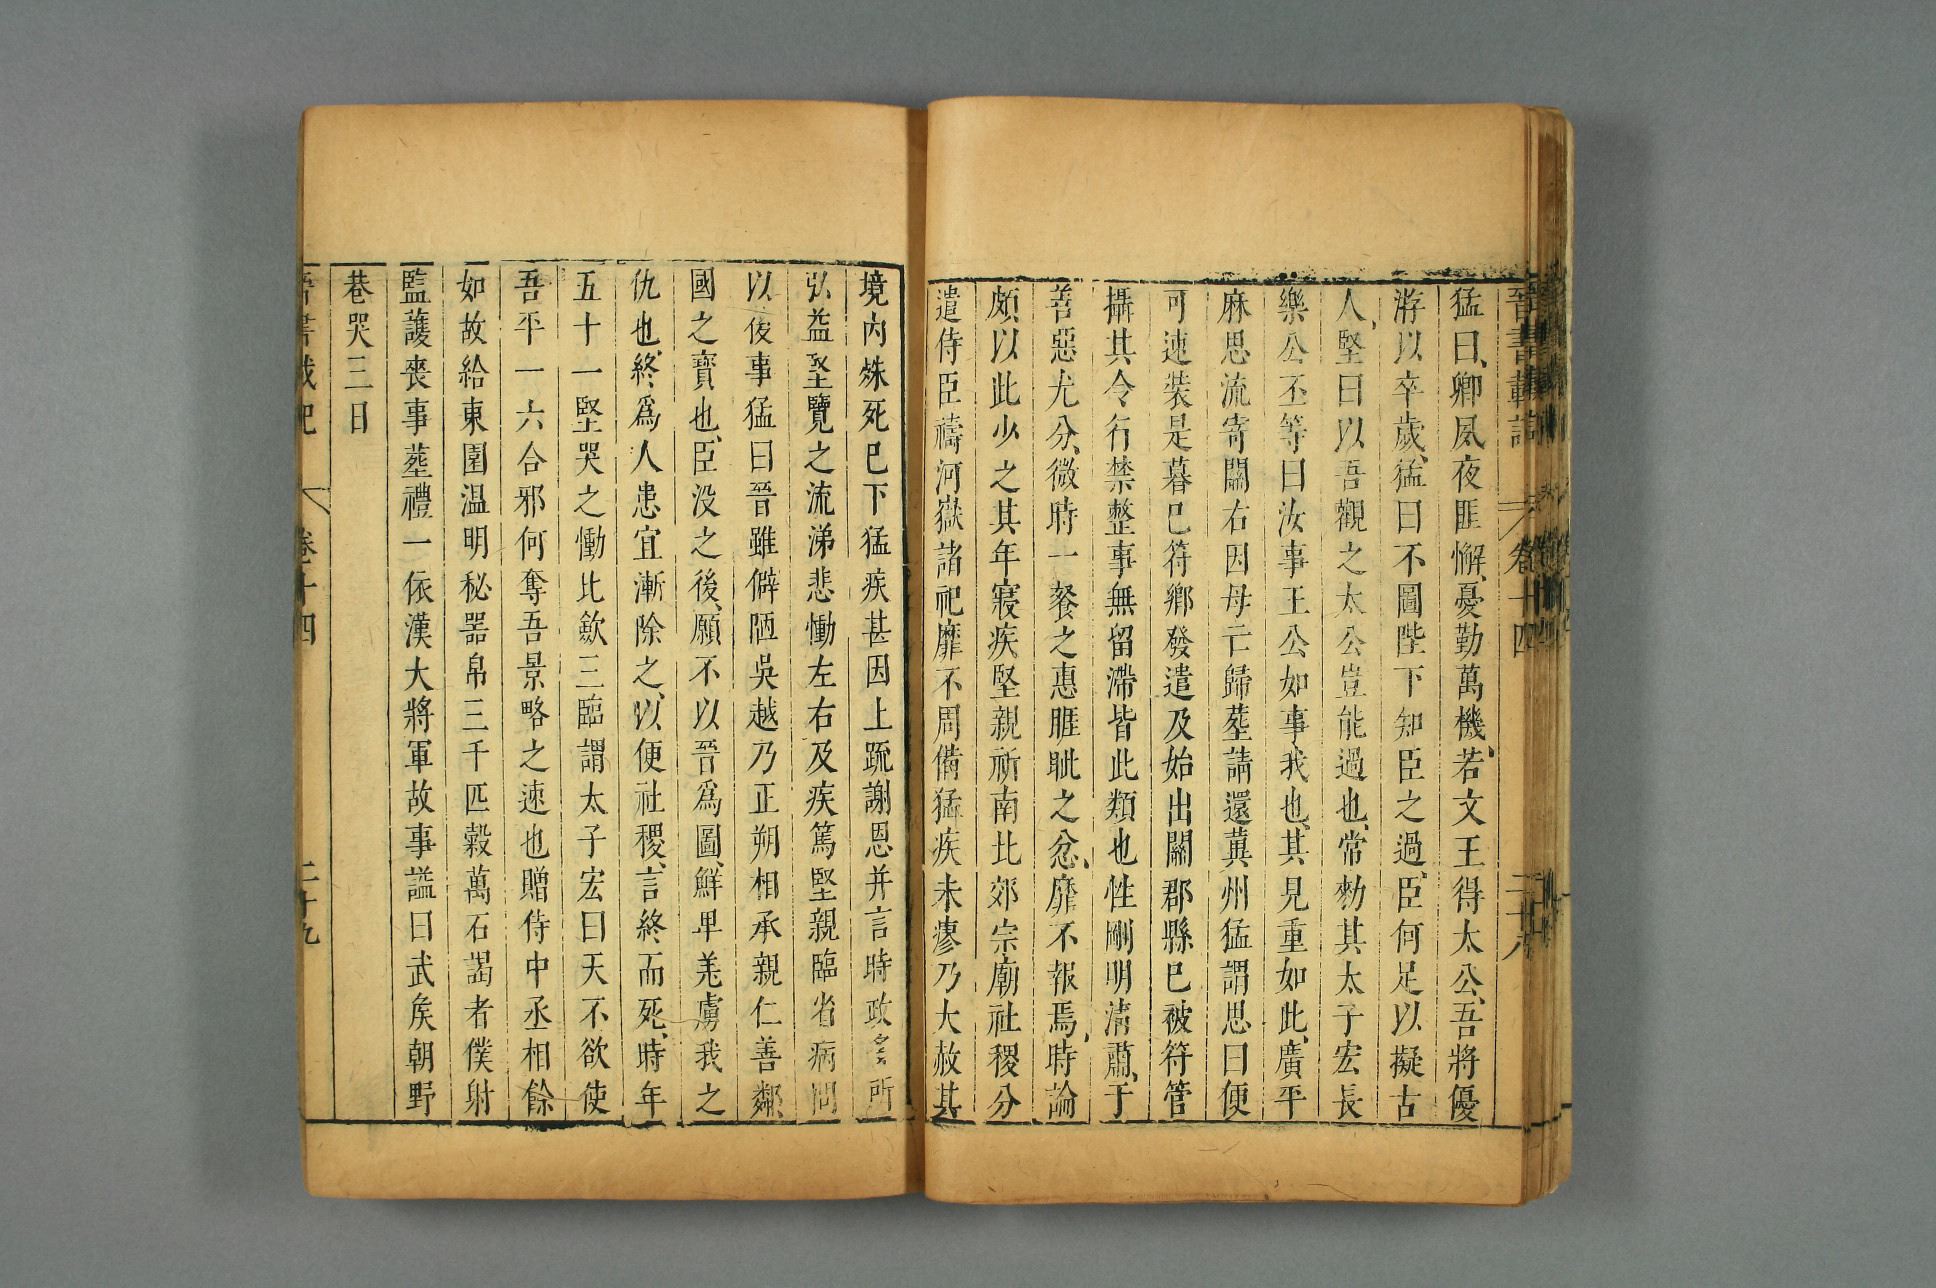 晉書載記 卷十四 二十八
猛曰、卿夙夜匪懈、憂勤萬機、若文王得太公、吾將優
游以卒歲、猛曰不圖陛下知臣之過、臣何足以擬古
人、堅曰以吾觀之太公豈能過也、常勑其太子宏長
樂公丕等曰汝事王公如事我也、其見重如此、廣平
麻思流寄關右因母亡歸塟請還冀州猛謂思曰便
可速装是暮巳符鄉發遣及始出關郡縣巳被符管
攝其令行禁整事無留滯皆此類也性剛明清肅、于
善惡尤分、微時一餐之惠睚眦之忿、靡不報焉、時論
頗以此少之其年寢疾堅親祈南北郊宗廟社稷分
遣侍臣禱河嶽諸祀靡不周備猛疾未瘳乃大赦其
境內殊死巳下猛疾甚因上疏謝恩并言時政多所
弘益堅覽之流涕悲慟左右及疾篤堅親臨省病問
以後事猛曰晉雖僻陋吳越乃正朔相承親仁善鄰、
國之寶也、臣没之後、願不以晉爲圖、鮮卑羌虜我之
仇也、終爲人患宜漸除之、以便社稷、言終而死、時年
五十一堅哭之慟比歛三臨謂太子宏曰天不欲使
吾平一六合邪何奪吾景略之速也贈侍中丞相餘
如故給東園温明秘器帛三千匹穀萬石謁者僕射
監護喪事塟禮一依漢大將軍故事謚曰武矦朝野
巷哭三日
晉書載記 卷十四 二十九